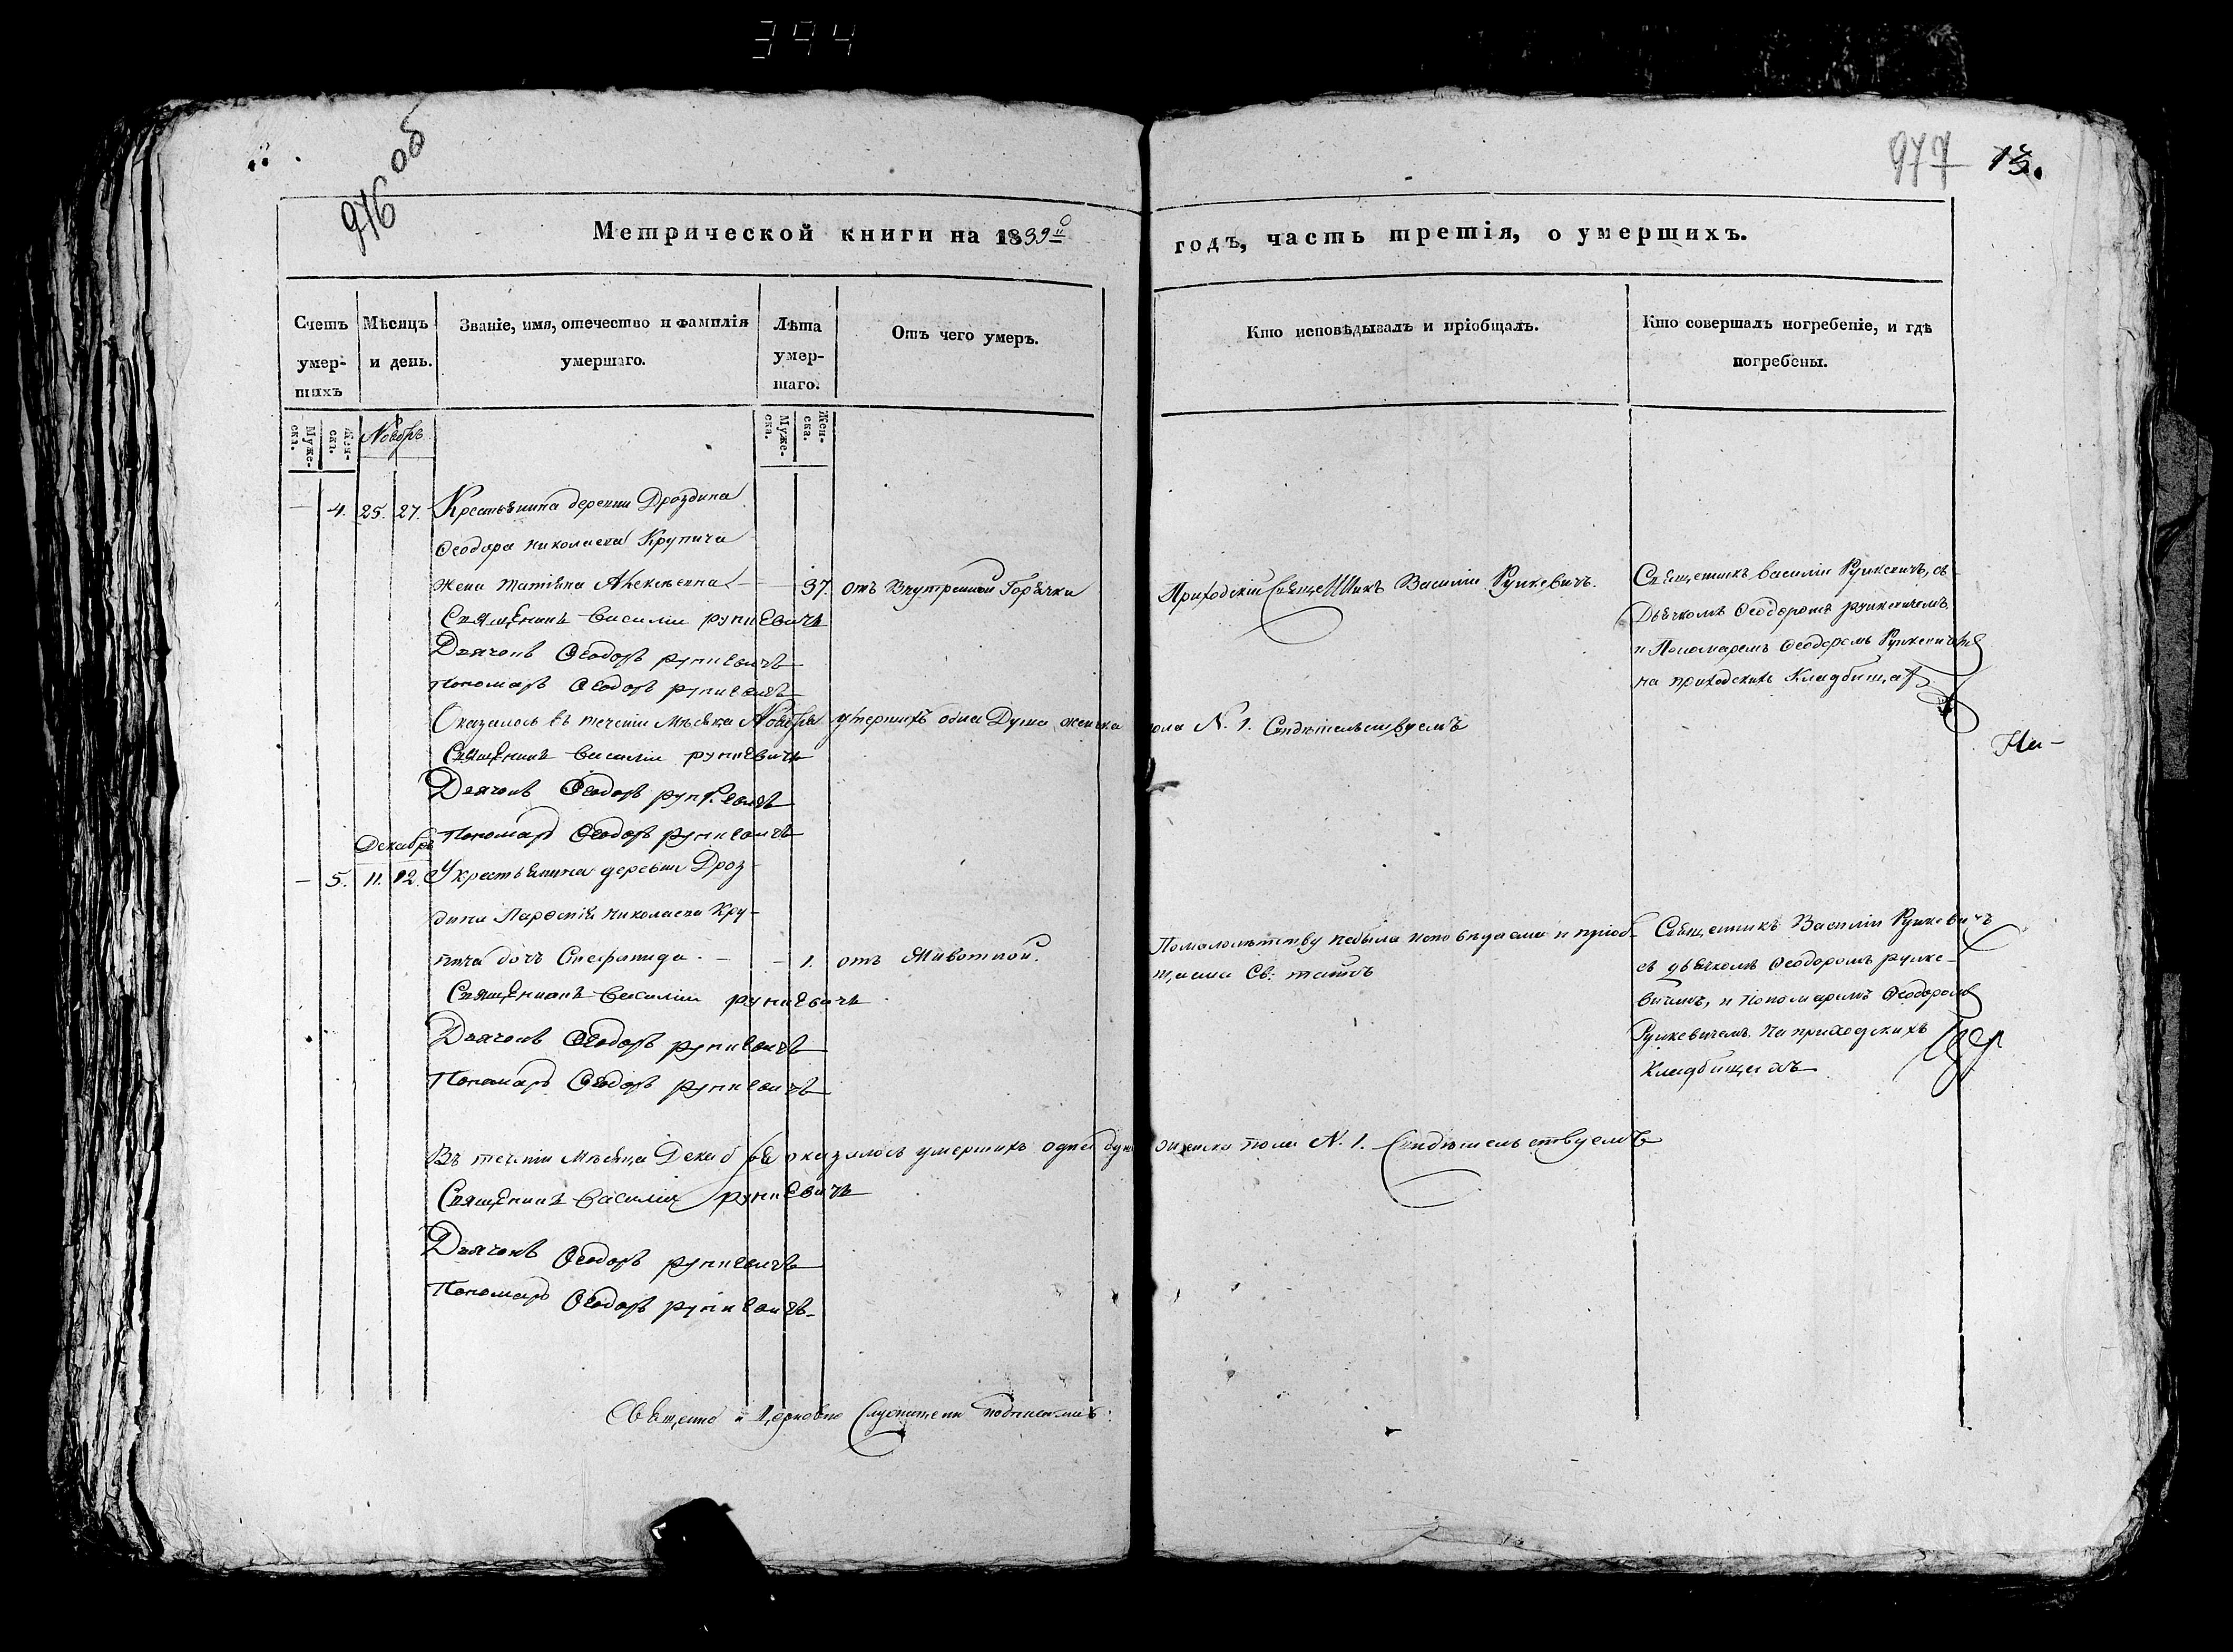 394
976 об
977 13.
Метрической книги на 1839й
годъ, часть третія, о умершихъ.
Счетъ умерших
Мужескъ.
Женскъ.
Мѣсяцъ и день.
Званіе, имя, отечество и фамилія умершаго.
Лѣта умершаго.
Мужеска.
Женска.
Отъ чего умеръ.
Кто исповѣдывалъ и пріобщалъ.
Кто совершалъ погребеніе, и гдѣ погребены.
Ноябрь
— 4. 25. 27. Крестьянина деревни Дроздина
Ѳеодора Николаева Крупича
жена Татіяна Алексѣевна — 37. отъ Внутренной Горячки
Приходскій Священникъ Василій Рункевичъ.
Священникъ Василій Рункевичъ, съ
Дьячкомъ Ѳеодоромъ Рункевичемъ
и Пономаремъ Ѳеодоромъ Рункевичемъ
на приходскихъ Кладбищахъ
Священикъ Василій Рункевичъ
Дьячокъ Ѳеодоръ Рункевичъ
Пономарь Ѳеодоръ Рункевичъ
Оказалось въ теченіи мѣсяца Ноября умершихъ одна Душа женска пола N. 1. Свидѣтельствуемъ
Священикъ Василій Рункевичъ
Дьячокъ Ѳеодоръ Рункевичъ
Пономарь Ѳеодоръ Рункевичъ
На-
Декабрь
— 5. 11. 12. У крестьянина деревни Дроз-
дина Парѳенія Николаева Кру-
пича дочъ Стефанида. — — 1. отъ Животной.
Помалолѣтству небыла исповѣдаема и пріоб-
щаема Св: таинъ
Священникъ Василій Рункевичъ
съ дьячкомъ Ѳеодоромъ Рунке-
вичемъ, и пономаремъ Ѳеодоромъ
Рункевичемъ на приходскихъ
Кладбищахъ
Священикъ Василій Рункевичъ
Дьячокъ Ѳеодоръ Рункевичъ
Пономарь Ѳеодоръ Рункевичъ
Въ теченіи мѣсяца Декабря оказалось умершихъ одна душа женска пола N. 1. Свидѣтельствуемъ
Священикъ Василій Рункевичъ
Дьячокъ Ѳеодоръ Рункевичъ
Пономарь Ѳеодоръ Рункевичъ
Священно и Церковно Служители подписались: